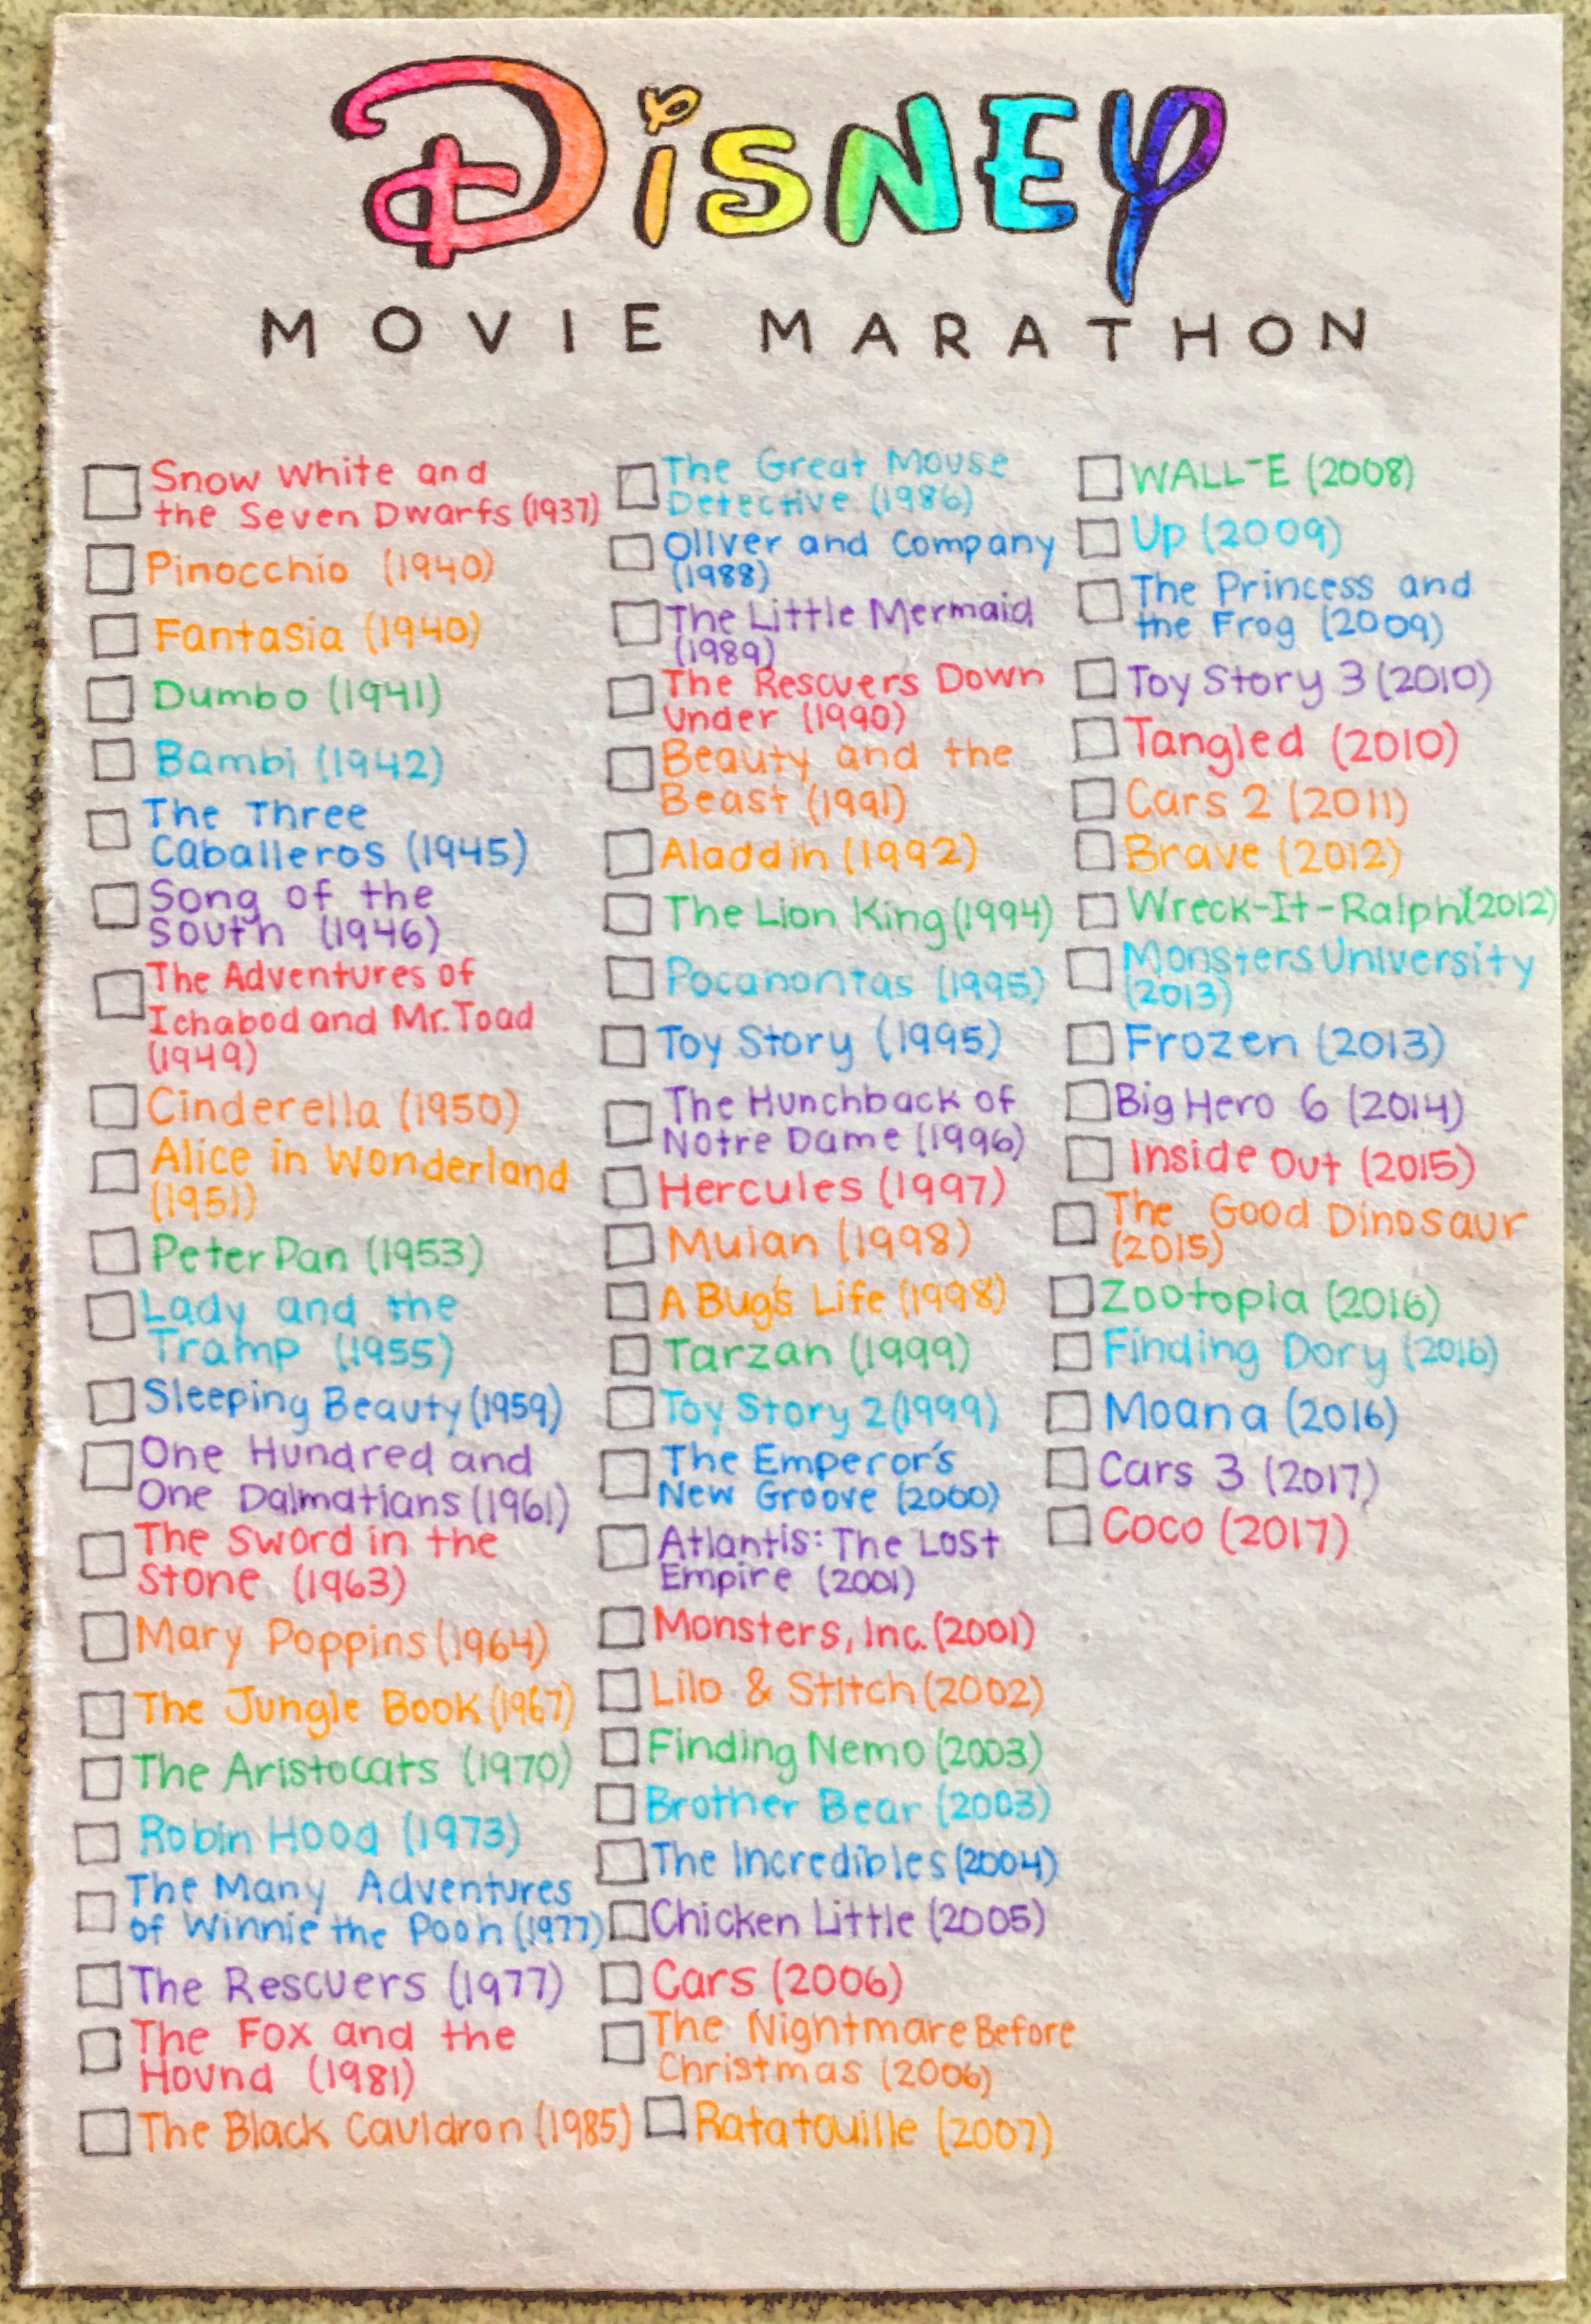 DiSNEY
MOVIE MARATHON
Snow White and
the Seven Dwarfs (1937)
Pinocchio (1940)
Fantasia (1940)
Dumbo (1941)
Bambi (1942)
The Three
Caballeros (1945)
Song of the
South (1946)
The Adventures of
Ichabod and Mr. Toad
(1949)
Cinderella (1950)
Alice in Wonderland
(1951)
Peter Pan (1953)
Lady and the
Tramp (1955)
Sleeping Beauty (1959)
One Hundred and
One Dalmatians (1961)
The Sword in the
Stone (1963)
Mary Poppins (1964)
The Jungle Book (1967)
The Aristocats (1970)
Robin Hood (1973)
The Many Adventures
of Winnie the Pooh (1977)
The Rescuers (1977)
The Fox and the
Hound (1981)
The Black Cauldron (1985)
The Great Mouse
Detective (1986)
Oliver and Company
(1988)
The Little Mermaid
(1989)
The Rescuers Down
Under (1990)
Beauty and the
Beast (1991)
Aladdin (1992)
The Lion King (1994)
Pocahontas (1995)
Toy Story (1995)
The Hunchback of
Notre Dame (1996)
Hercules (1997)
Mulan (1998)
A Bug's Life (1998)
Tarzan (1999)
Toy Story 2 (1999)
The Emperor's
New Groove (2000)
Atlantis: The Lost
Empire (2001)
Monsters, Inc. (2001)
Lilo & Stitch (2002)
Finding Nemo (2003)
Brother Bear (2003)
The Incredibles (2004)
Chicken Little (2005)
Cars (2006)
The Nightmare Before
Christmas (2006)
Ratatouille (2007)
WALL-E (2008)
Up (2009)
The Princess and
the Frog (2009)
Toy Story 3 (2010)
Tangled (2010)
Cars 2 (2011)
Brave (2012)
Wreck-It-Ralph (2012)
Monsters University
(2013)
Frozen (2013)
Big Hero 6 (2014)
Inside Out (2015)
The Good Dinosaur
(2015)
Zootopia (2016)
Finding Dory (2016)
Moana (2016)
Cars 3 (2017)
Coco (2017)